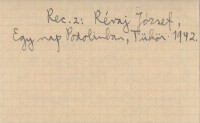 Rec.: 2: Révaj József,
Egy nap Podolinban, Tükör 1942.